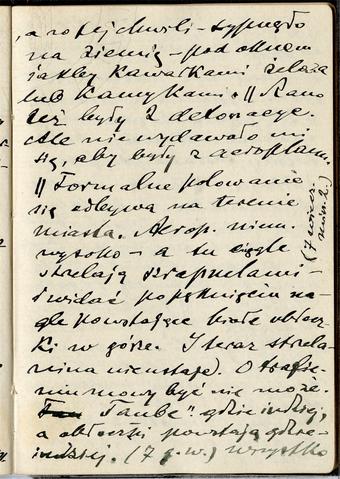 , a po tej chwili – sypnęło
na ziemię – pod oknem
jakby kawałkami żelaza
lub kamykami. || Rano
też były 2 detonacje.
Ale nie wydawało mi
się, aby były z aeroplanu.
|| Formalne polowanie
się odbywa na terenie
miasta. Aerop. niem.
wysoko – a tu ciągle
strzelają szrapnelami –
i widać po pęknięciu na-
gle powstające białe obłocz-
ki w górze. I teraz strzela-
nina nieustaje. O trafie-
niu mowy być nie może.
"Taube" gdzieindziej,
a obłoczki powstają gdzie-
indziej. (7 g. w.) wszystko
(7 wiecz.